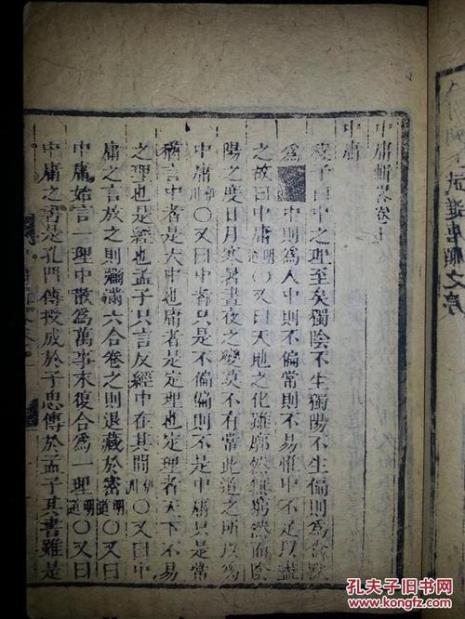 中庸輯畧卷上
中庸
程子曰中之理至矣獨陰不生獨陽不生偏則為禽獸
為 中則為人中則不偏常則不易惟中不足以盡
之故曰中庸明道○又曰天地之化雖廓然無窮然而陰
陽之度日月寒暑晝夜之變莫不有常此道之所以為
中庸伊川○又曰中者只是不偏偏則不是中庸只是常
猶言中者是大中也庸者是定理也定理者天下不易
之理也是經也孟子只言反經中在其間伊川○又曰中
庸之言放之則彌滿六合卷之則退藏於密明道○又曰
中庸始言一理中散為萬事末復合為一理明道○又曰
中庸之書是孔門傳授成於子思傳於孟子其書雖是
之序
孔夫子旧书网
www.kongfz.com